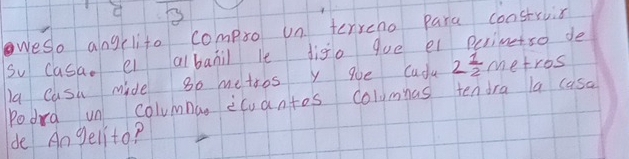 weso angelito compro un terreno para construir
su casa. el albañil le dijo que el perimetro de
la casa mide 80 metros y que cada 2 1/2 metros
podra un columna. ¿cuantes columnas tendra la casa
de Angelito?